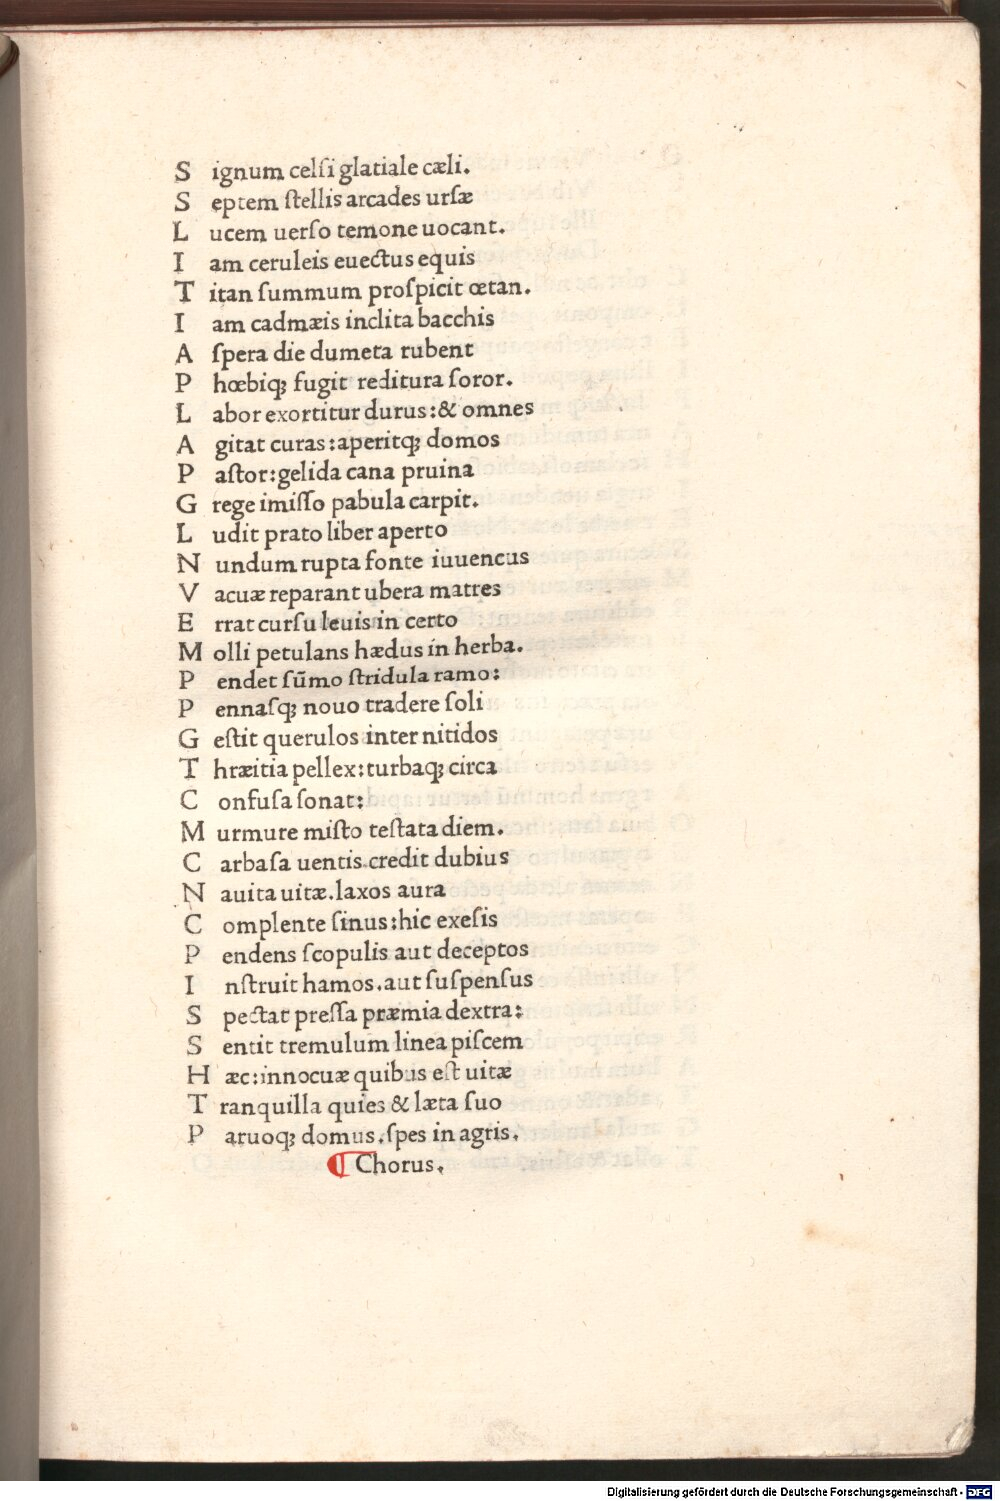 S ignum celſi glatiale cæli.
S eptem ſtellis arcades urſæ
L ucem uerſo temone uocant.
I am ceruleis euectus equis
T itan ſummum proſpicit œtan.
I am cadmæis inclita bacchis
A ſpera die dumeta rubent
P hœbiqꝫ fugit reditura ſoror.
L abor exortitur durus: & omnes
A gitat curas: aperitqꝫ domos
P aſtor: gelida cana pruina
G rege imiſſo pabula carpit.
L udit prato liber aperto
N undum rupta fonte iuuencus
V acuæ reparant ubera matres
E rrat curſu leuis in certo
M olli petulans hædus in herba.
P endet ſūmo ſtridula ramo:
P ennaſqꝫ nouo tradere ſoli
G eſtit querulos inter nitidos
T hræitia pellex: turbaqꝫ circa
C onfuſa ſonat:
M urmure miſto teſtata diem.
C arbaſa uentis credit dubius
N auita uitæ. laxos aura
C omplente ſinus: hic exeſis
P endens ſcopulis aut deceptos
I nſtruit hamos. aut ſuſpenſus
S pectat preſſa præmia dextra:
S entit tremulum linea piſcem
H æc: innocuæ quibus eſt uitæ
T ranquilla quies & læta ſuo
P aruoqꝫ domus. ſpes in agris.
¶ Chorus.
Digitalisierung gefördert durch die Deutsche Forschungsgemeinschaft - DFG